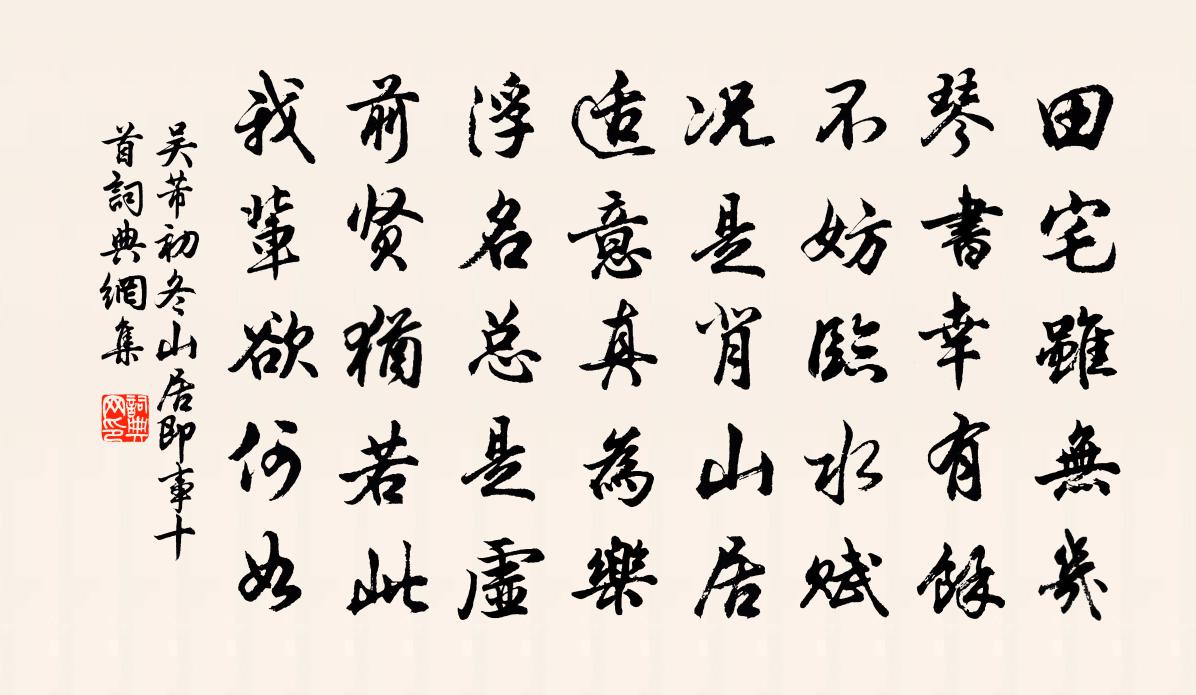 田宅雖無幾
琴書幸有餘
不妨臨水賦
況是肖山居
适意真為樂
浮名总是虛
前贤猶若此
我輩欲何如
吴芾初冬山居即事十
首詞典網集
詞典網印